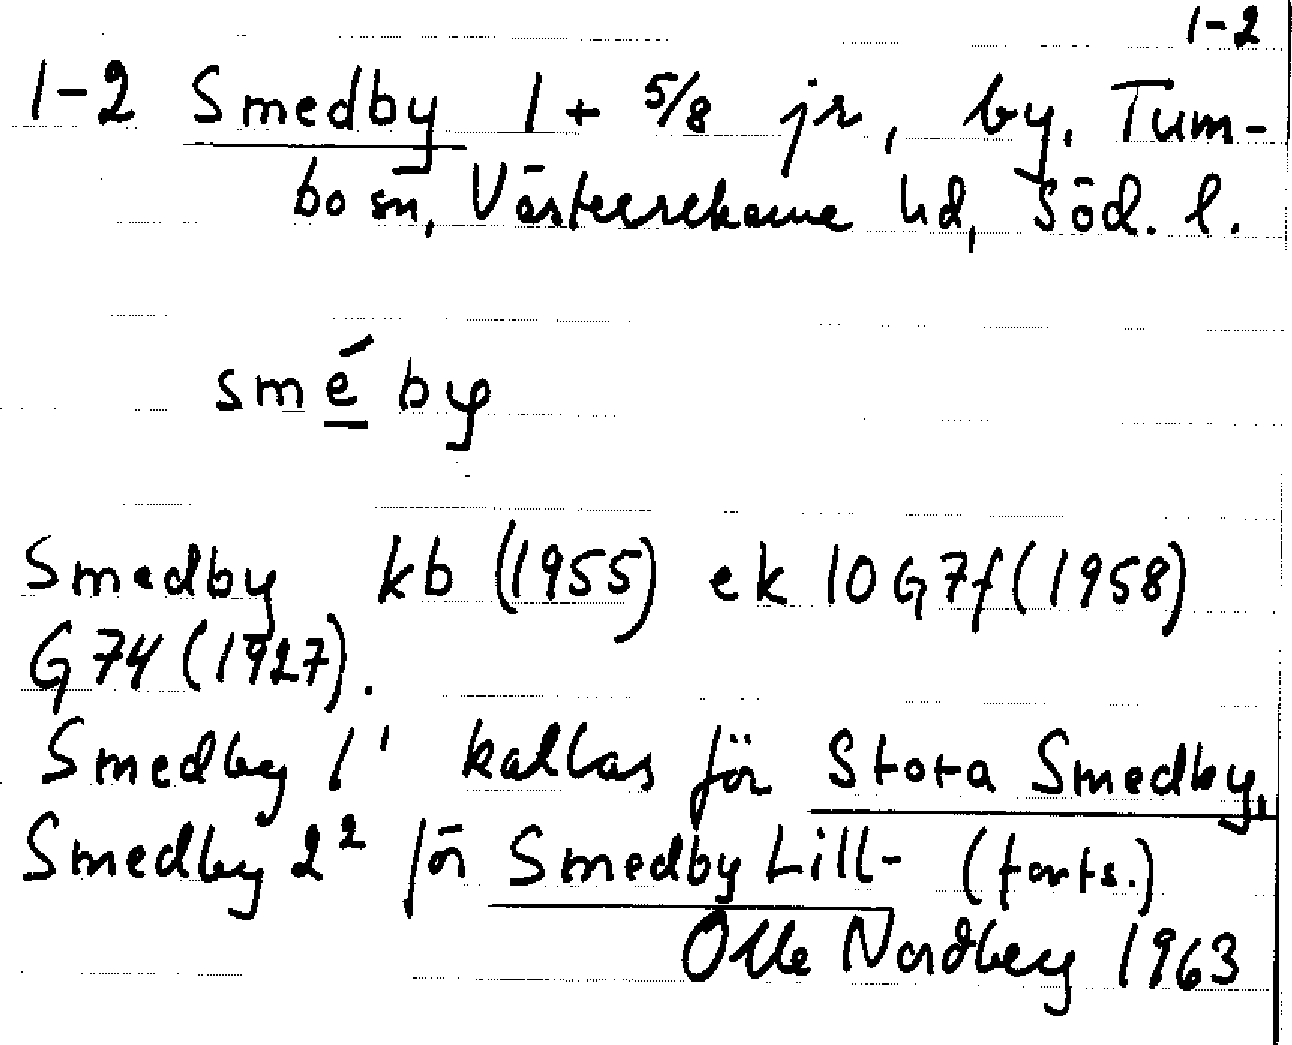 1-2
1-2 Smedby 1 + 5/8 jr, by, Tum-
bo sn, Västerrekarne hd, Söd. l.
smé by
Smedby kb (1955) ek 10G7f (1958)
G74 (1927).
Smedby 1¹ kallas för Stora Smedby,
Smedby 2² för Smedby Lill- (forts.)
Olle Nordberg 1963